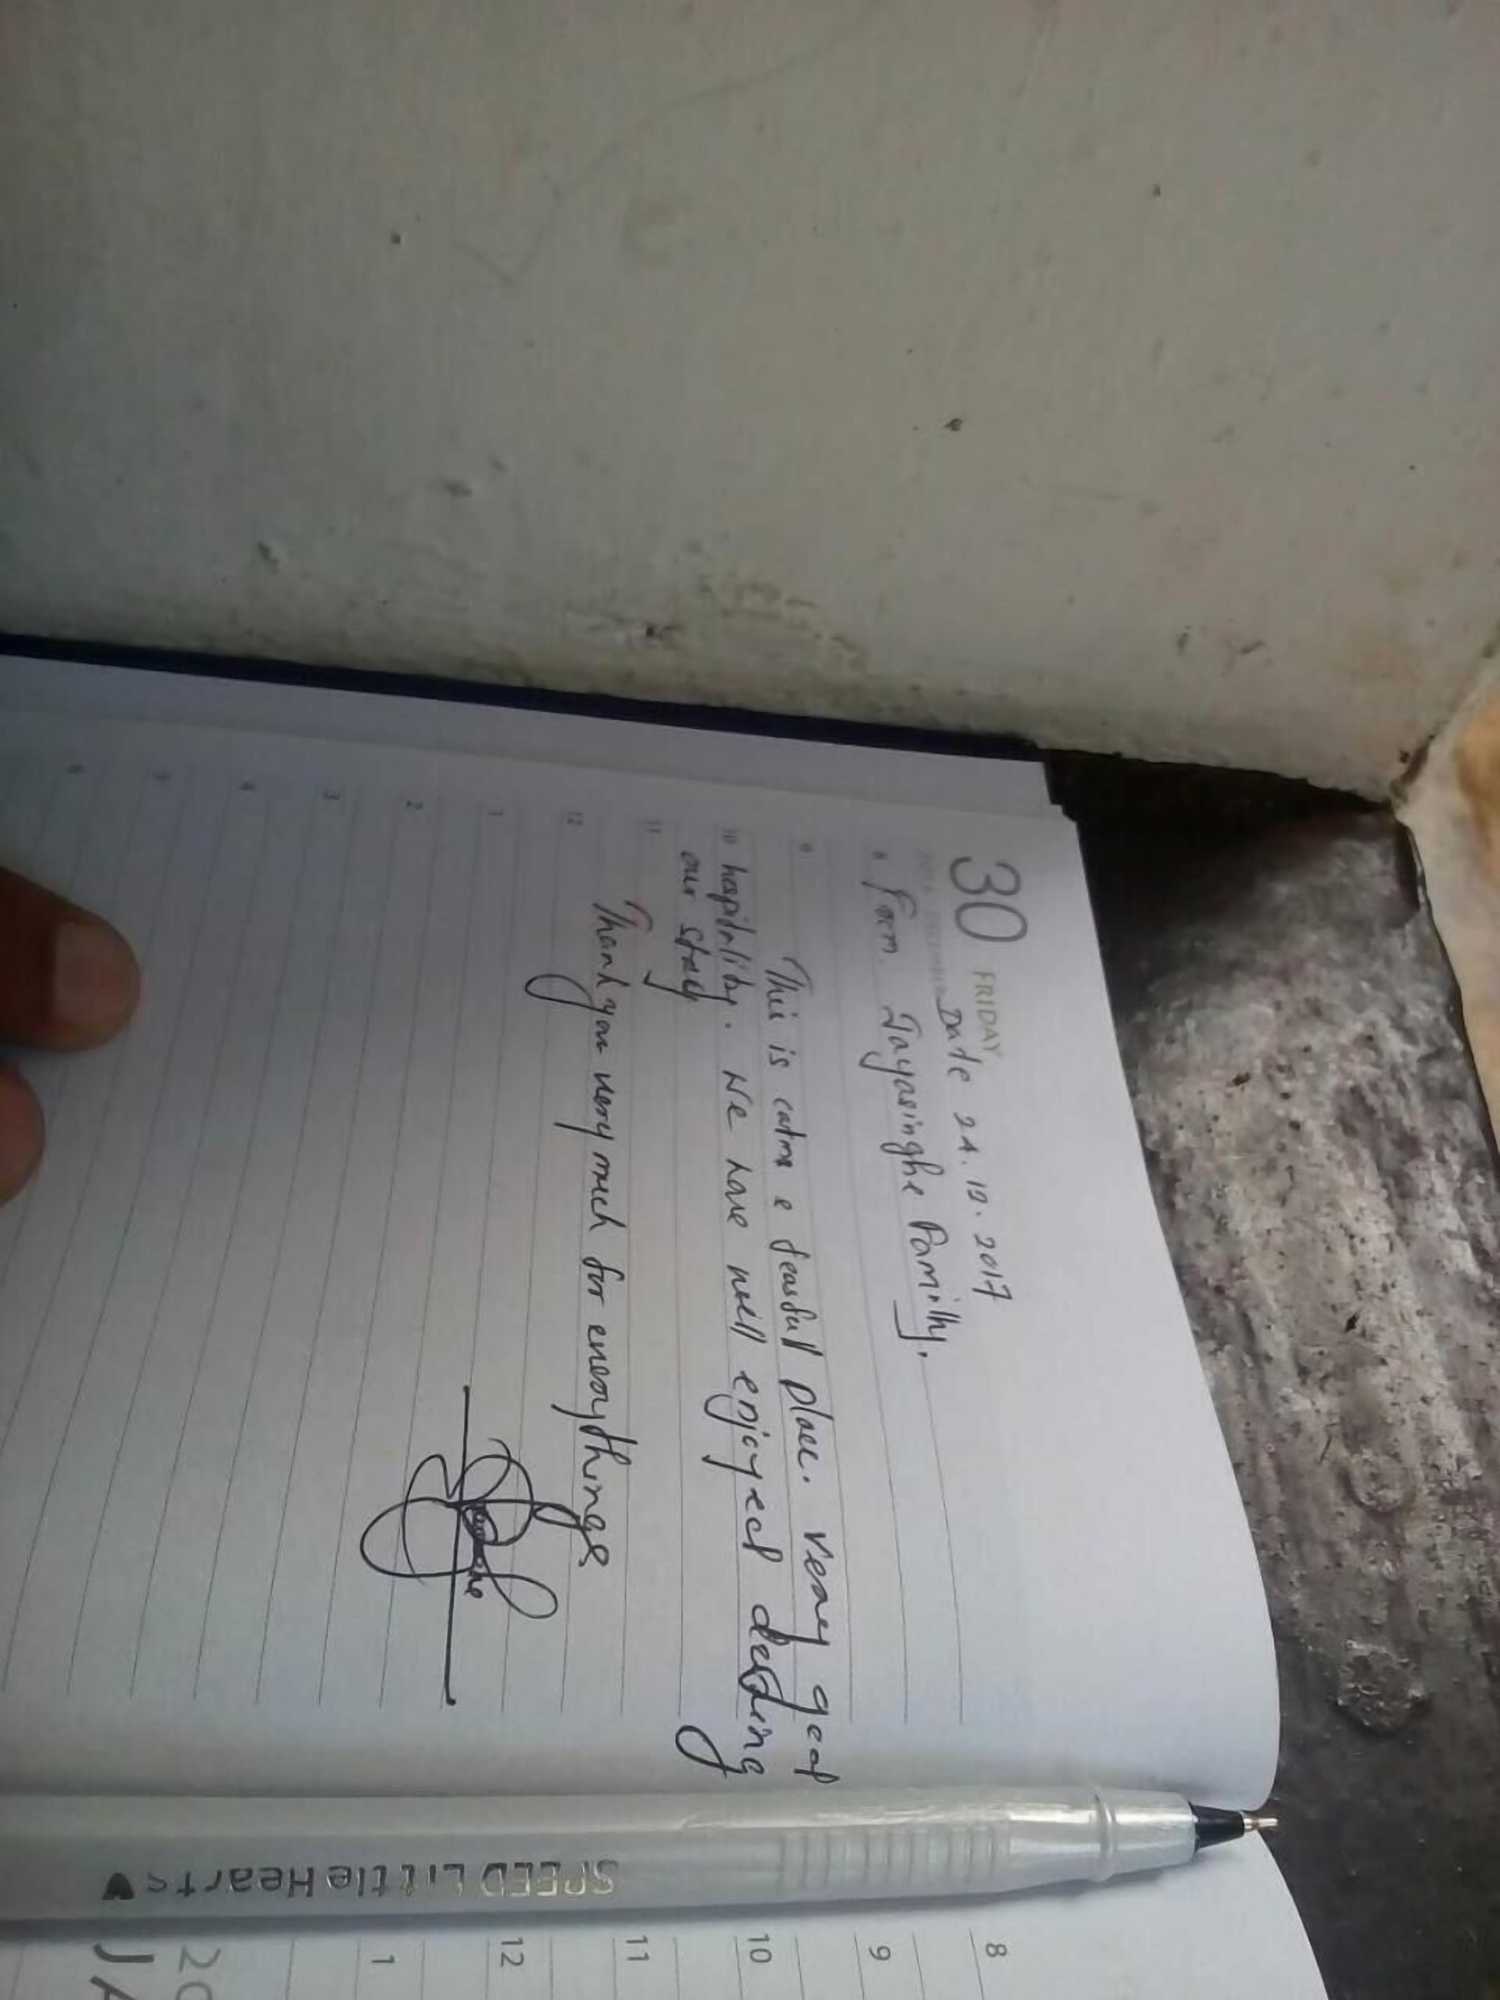 30 FRIDAY
Date 24.10.2017
8 From Jayasinghe Pamilly.
9
This is calm & feasfull place. very good
10 hospitality. We have well enjoyed dusting
our stay
11
Thank you very much for everythings
12
1
2
3
4
SPEED Little Hearts
8
9
10
11
12
1
20
JA